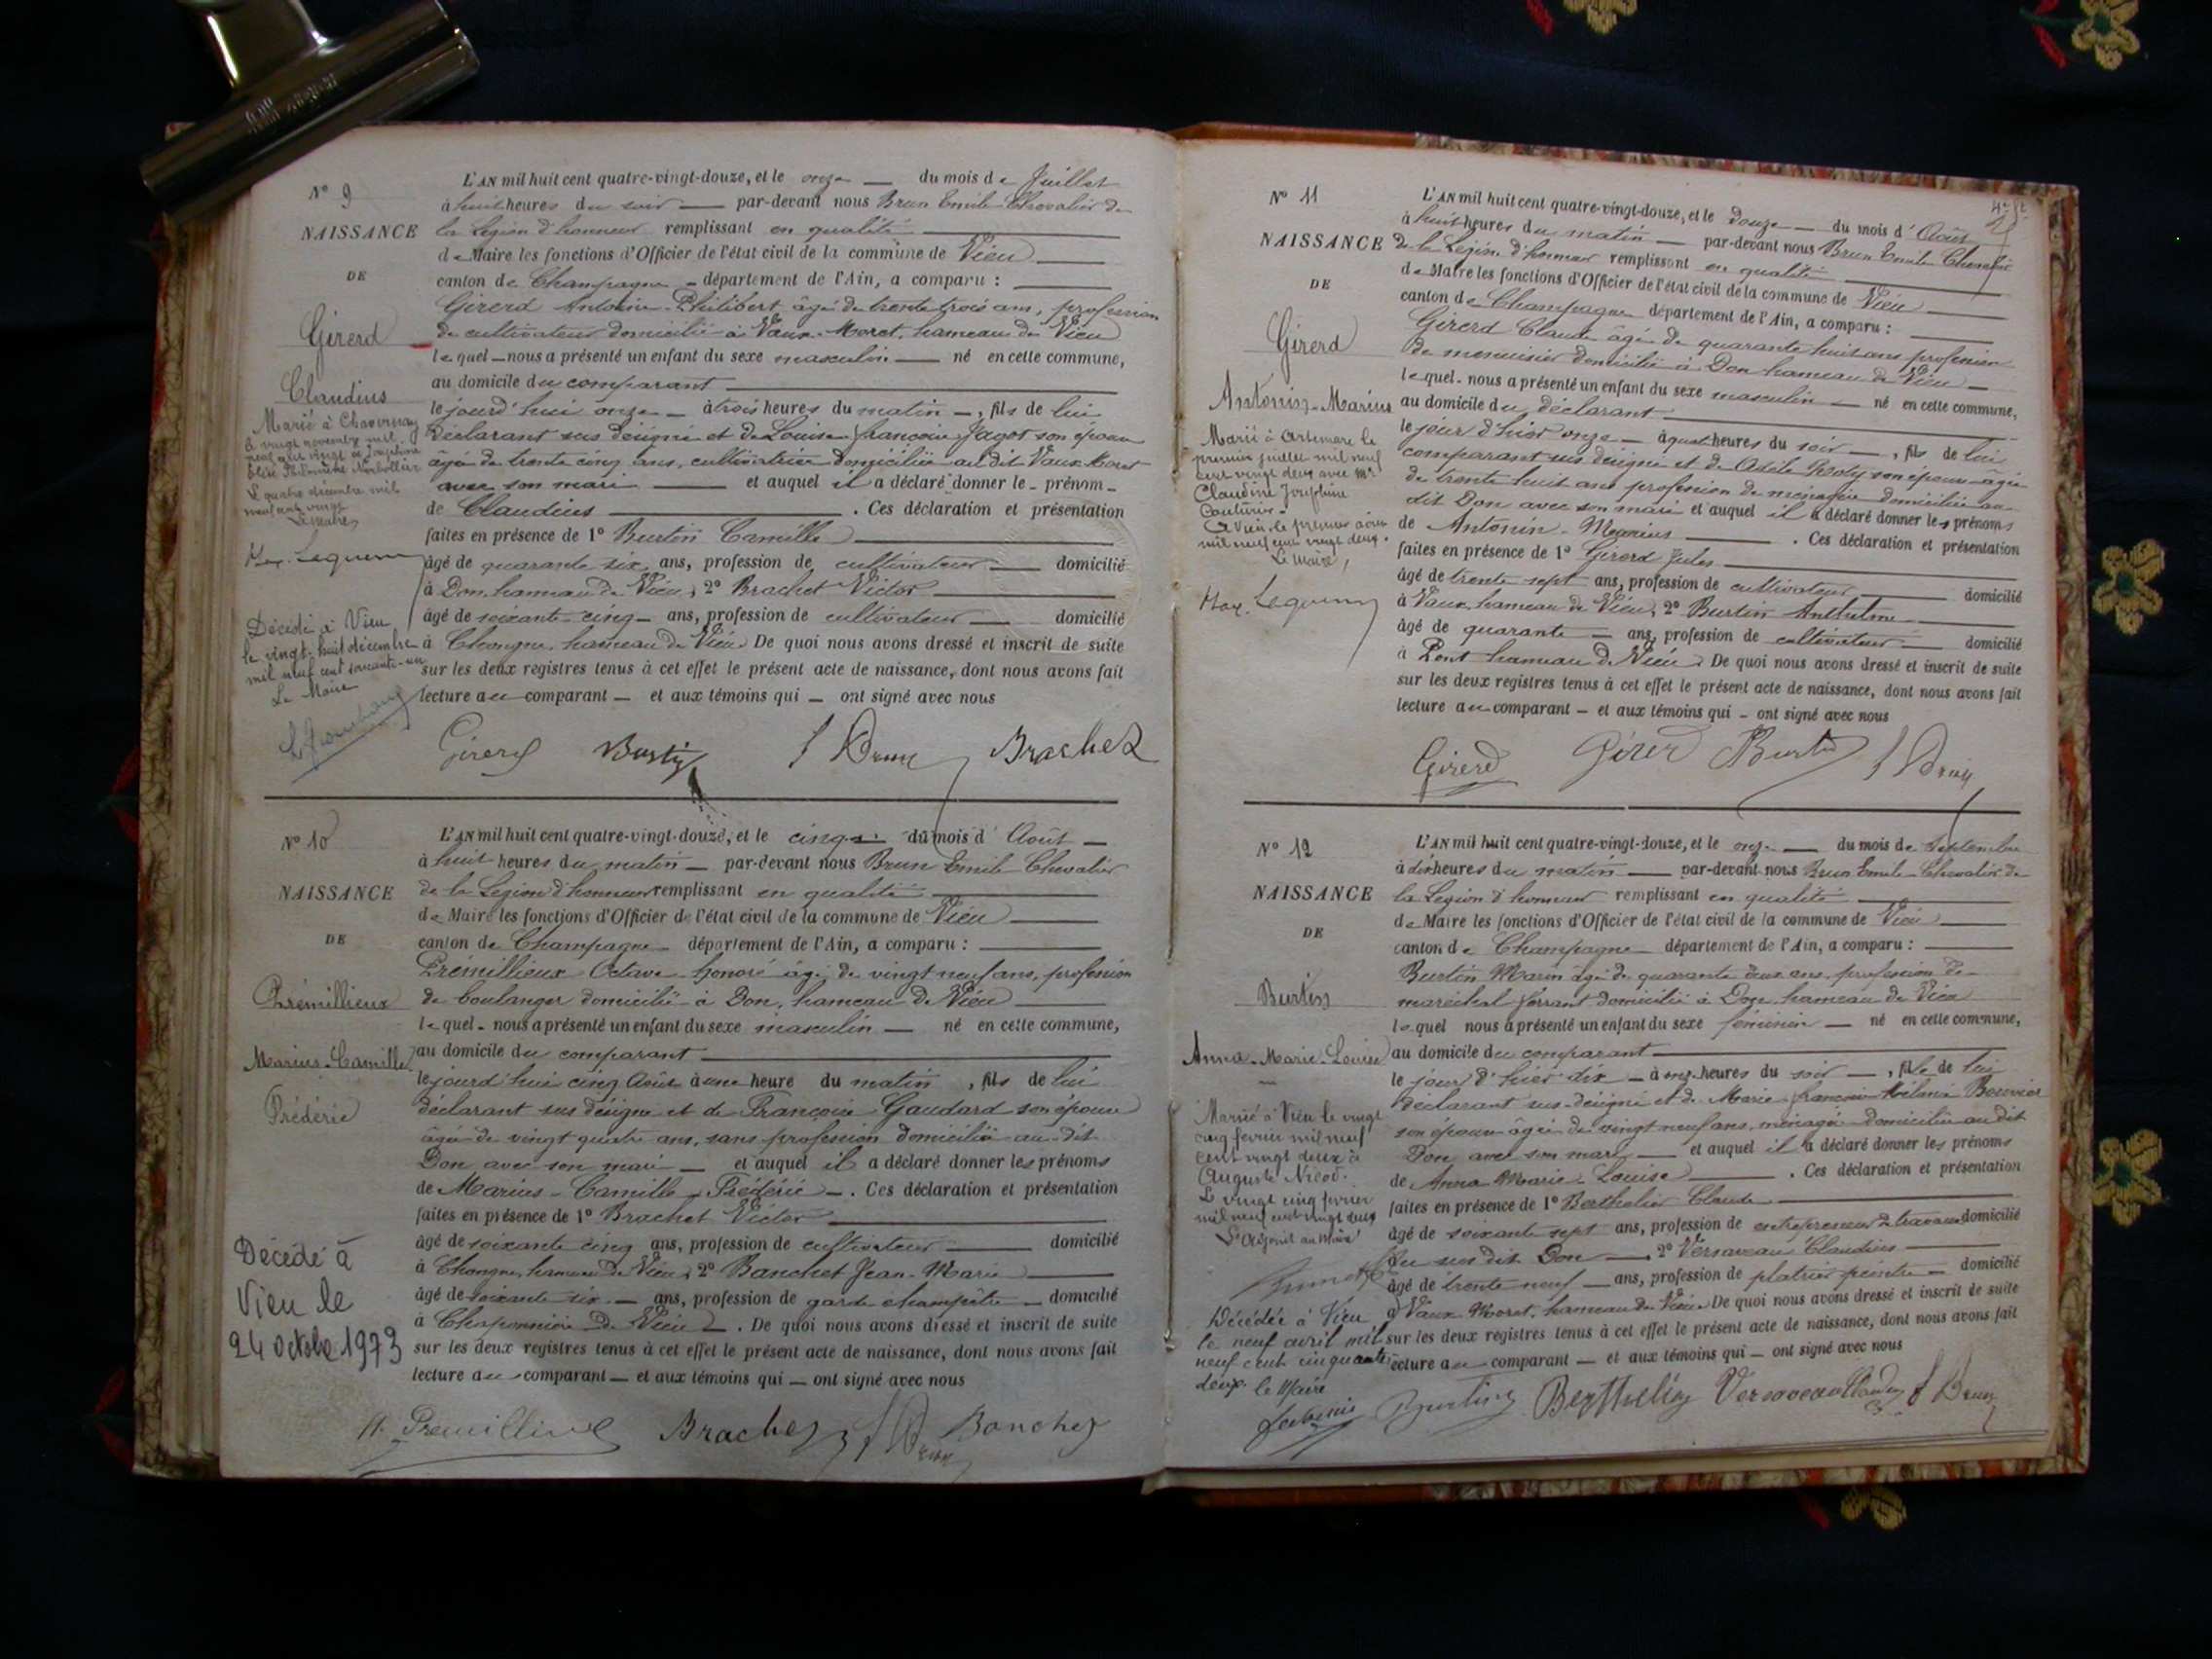 N° 9
NAISSANCE
DE
Girerd
Claudius
Marié à Chavornay
le vingt novembre mil
neuf cent vingt à Joséphine
Le quatre décembre mil
neuf cent vingt
Le Maire,
Décédé à Vieu
le vingt-huit décembre
mil neuf cent soixante-un
Le Maire
L'AN mil huit cent quatre-vingt-douze, et le onze — du mois de Juillet
à huit heures du soir — par-devant nous Brun Emile Chevalier de
la Légion d'honneur remplissant en qualité
de Maire les fonctions d'Officier de l'état civil de la commune de Vieu
canton de Champagne — département de l'Ain, a comparu :
Girerd Antoine-Philibert âgé de trente trois ans, profession
de cultivateur domicilié à Vaux-Moret, hameau de Vieu
lequel — nous a présenté un enfant du sexe masculin — né en cette commune,
au domicile du comparant
le jourd'hui onze — à trois heures du matin —, fils de lui
déclarant sus désigné et de Louise françoise Jagot son épouse
âgée de trente cinq ans, cultivatrice domiciliée au dit Vaux Moret
avec son mari — et auquel il a déclaré donner le - prénom -
de Claudius — . Ces déclaration et présentation
faites en présence de 1° Burtin Camille
âgé de quarante six ans, profession de cultivateur — domicilié
à Don hameau de Vieu, 2° Brachet Victor
âgé de soixante cinq — ans, profession de cultivateur — domicilié
à Chongne, hameau de Vieu De quoi nous avons dressé et inscrit de suite
sur les deux registres tenus à cet effet le présent acte de naissance, dont nous avons fait
lecture au comparant — et aux témoins qui — ont signé avec nous
Girerd Burtin E Brun Brachet
N° 10
NAISSANCE
DE
Prémillieux
Marius-Camille
Frédéric
Décédé à
Vieu le
24 octobre 1973
L'AN mil huit cent quatre-vingt-douze, et le cinq — du mois d'Août —
à huit heures du matin — par-devant nous Brun Emile Chevalier
de la Légion d'honneur remplissant en qualité
de Maire les fonctions d'Officier de l'état civil de la commune de Vieu
canton de Champagne — département de l'Ain, a comparu :
Prémillieux Octave honoré âgé de vingt neuf ans, profession
de boulanger domicilié à Don, hameau de Vieu
lequel - nous a présenté un enfant du sexe masculin — né en cette commune,
au domicile du comparant
le jourd'hui cinq Août à une heure du matin , fils de lui
déclarant sus désigné et de Françoise Gaudard son épouse
âgée de vingt quatre ans, sans profession domiciliée au dit
Don avec son mari — et auquel il a déclaré donner les prénoms
de Marius - Camille - Frédéric — . Ces déclaration et présentation
faites en présence de 1° Brachet Victor
âgé de soixante cinq ans, profession de cultivateur — domicilié
à Chongne, hameau de Vieu, 2° Banchet Jean-Marie
âgé de soixante six — ans, profession de garde champêtre — domicilié
à Chaponnière de Vieu — . De quoi nous avons dressé et inscrit de suite
sur les deux registres tenus à cet effet le présent acte de naissance, dont nous avons fait
lecture au comparant — et aux témoins qui — ont signé avec nous
H. Premillieux Brachet E Brun Banchet
N° 11
NAISSANCE
DE
Girerd
Antonin-Marius
Marié à Artemare le
premier juillet mil neuf
cent vingt deux avec Mlle
Claudine Joséphine
Couturier
A Vieu le premier août
mil neuf cent vingt deux.
Le Maire,
L'AN mil huit cent quatre-vingt-douze, et le douze — du mois d'Août
à huit heures du matin — par-devant nous Brun Emile Chevalier
de la Légion d'honneur remplissant en qualité
de Maire les fonctions d'Officier de l'état civil de la commune de Vieu
canton de Champagne département de l'Ain, a comparu :
Girerd Claude âgé de quarante huit ans profession
de menuisier domicilié à Don hameau de Vieu —
lequel - nous a présenté un enfant du sexe masculin — né en cette commune,
au domicile du déclarant
le jour d'hier onze — à quatre heures du soir —, fils de lui
comparant sus désigné et de son épouse âgée
de trente huit ans profession de ménagère domiciliée au
dit Don avec son mari et auquel il a déclaré donner les prénoms
de Antonin - Marius — . Ces déclaration et présentation
faites en présence de 1° Girerd Jules
âgé de trente sept ans, profession de cultivateur — domicilié
à Vaux, hameau de Vieu, 2° Burtin Anthelme
âgé de quarante — ans, profession de cultivateur — domicilié
à Pont hameau de Vieu. De quoi nous avons dressé et inscrit de suite
sur les deux registres tenus à cet effet le présent acte de naissance, dont nous avons fait
lecture au comparant — et aux témoins qui — ont signé avec nous
Girerd Girerd Burtin E Brun
N° 12
NAISSANCE
DE
Burtin
Anna-Marie-Louise
Mariée à Vieu le vingt
cinq février mil neuf
cent vingt deux à
Auguste Nicod.
Le vingt cinq février
mil neuf cent vingt deux
L'Adjoint au Maire
Décédée à Vieu
le neuf avril mil
neuf cent cinquante
deux le Maire
L'AN mil huit cent quatre-vingt-douze, et le onze — du mois de Septembre
à dix heures du matin — par-devant nous Brun Emile Chevalier de
la Légion d'honneur remplissant en qualité
de Maire les fonctions d'Officier de l'état civil de la commune de Vieu
canton de Champagne — département de l'Ain, a comparu :
Burtin Marin âgé de quarante deux ans, profession de
maréchal ferrant domicilié à Don hameau de Vieu
lequel nous a présenté un enfant du sexe féminin — né en cette commune,
au domicile du comparant
le jour d'hier dix — à onze heures du soir —, fille de lui
déclarant sus-désigné et de Marie françoise Mélanie Bouvier
son épouse âgée de vingt neuf ans, ménagère domiciliée au dit
Don avec son mary — et auquel il a déclaré donner les prénoms
de Anna Marie - Louise — . Ces déclaration et présentation
faites en présence de 1° Berthelier Claude
âgé de soixante sept ans, profession de entrepreneur de travaux domicilié
au sus dit Don — 2° Versaveau Claudius
âgé de trente neuf — ans, profession de platrier peintre — domicilié
à Vaux Moret, hameau de Vieu De quoi nous avons dressé et inscrit de suite
sur les deux registres tenus à cet effet le présent acte de naissance, dont nous avons fait
lecture au comparant — et aux témoins qui — ont signé avec nous
Burtin Berthelier Versaveau Claudius E Brun